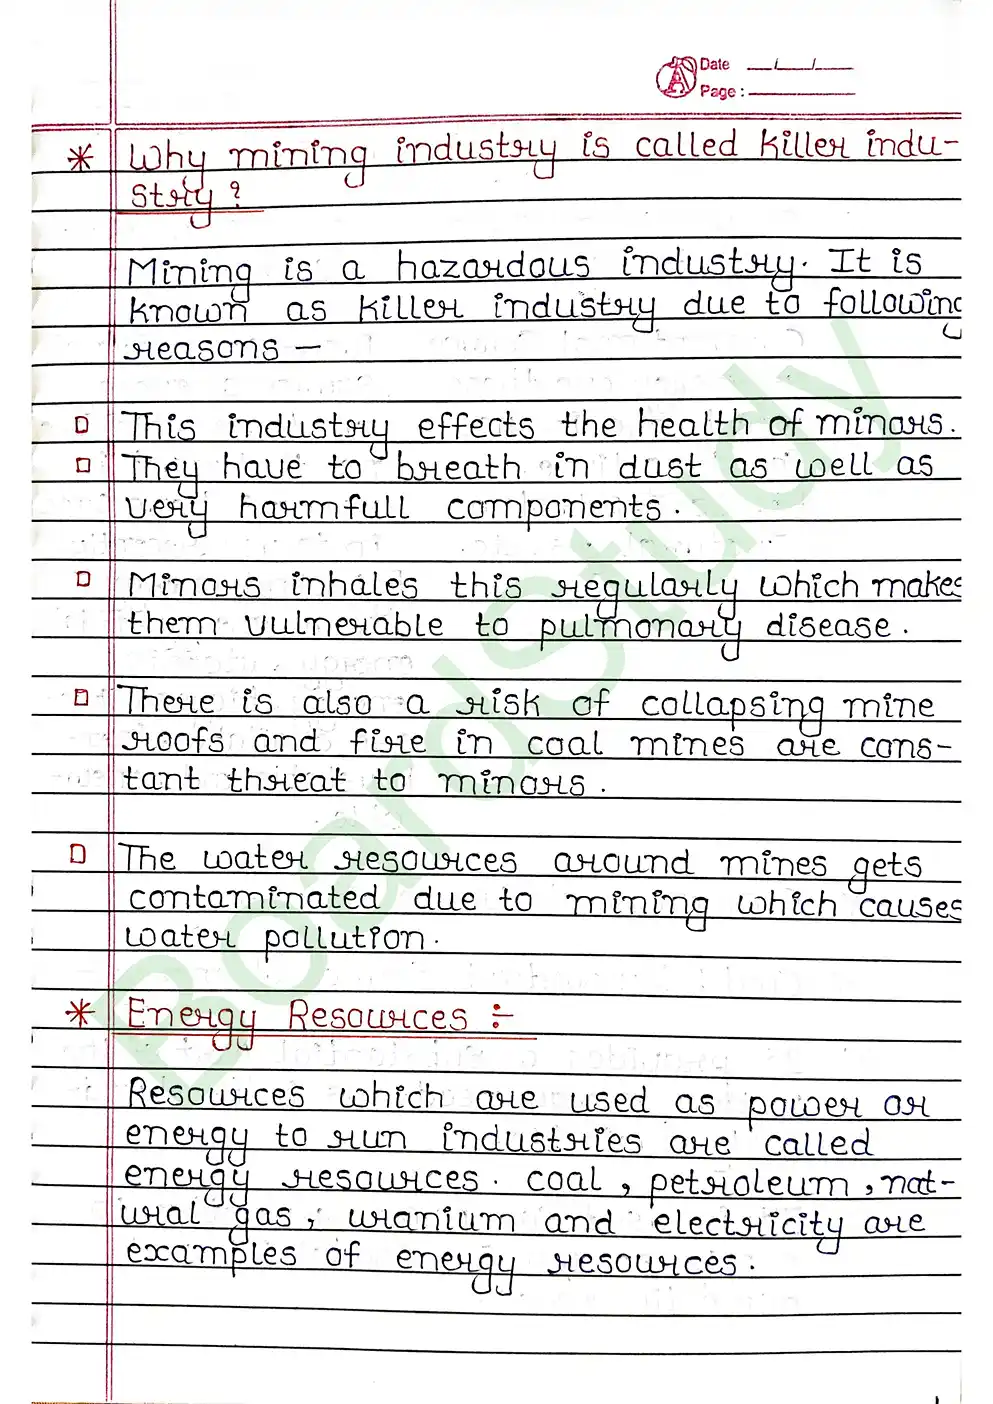 Date __/__/__
Page : ________
* Why mining industry is called killer indu-
stry ?
Mining is a hazardous industry. It is
known as killer industry due to following
reasons —
□ This industry effects the health of minors.
□ They have to breath in dust as well as
very harmfull components.
□ Minors inhales this regularly which makes
them vulnerable to pulmonary disease.
□ There is also a risk of collapsing mine
roofs and fire in coal mines are cons-
tant threat to minors.
□ The water resources around mines gets
contaminated due to mining which causes
water pollution.
* Energy Resources :-
Resources which are used as power or
energy to run industries are called
energy resources. coal, petroleum, nat-
ural gas, uranium and electricity are
examples of energy resources.
BoardStudy